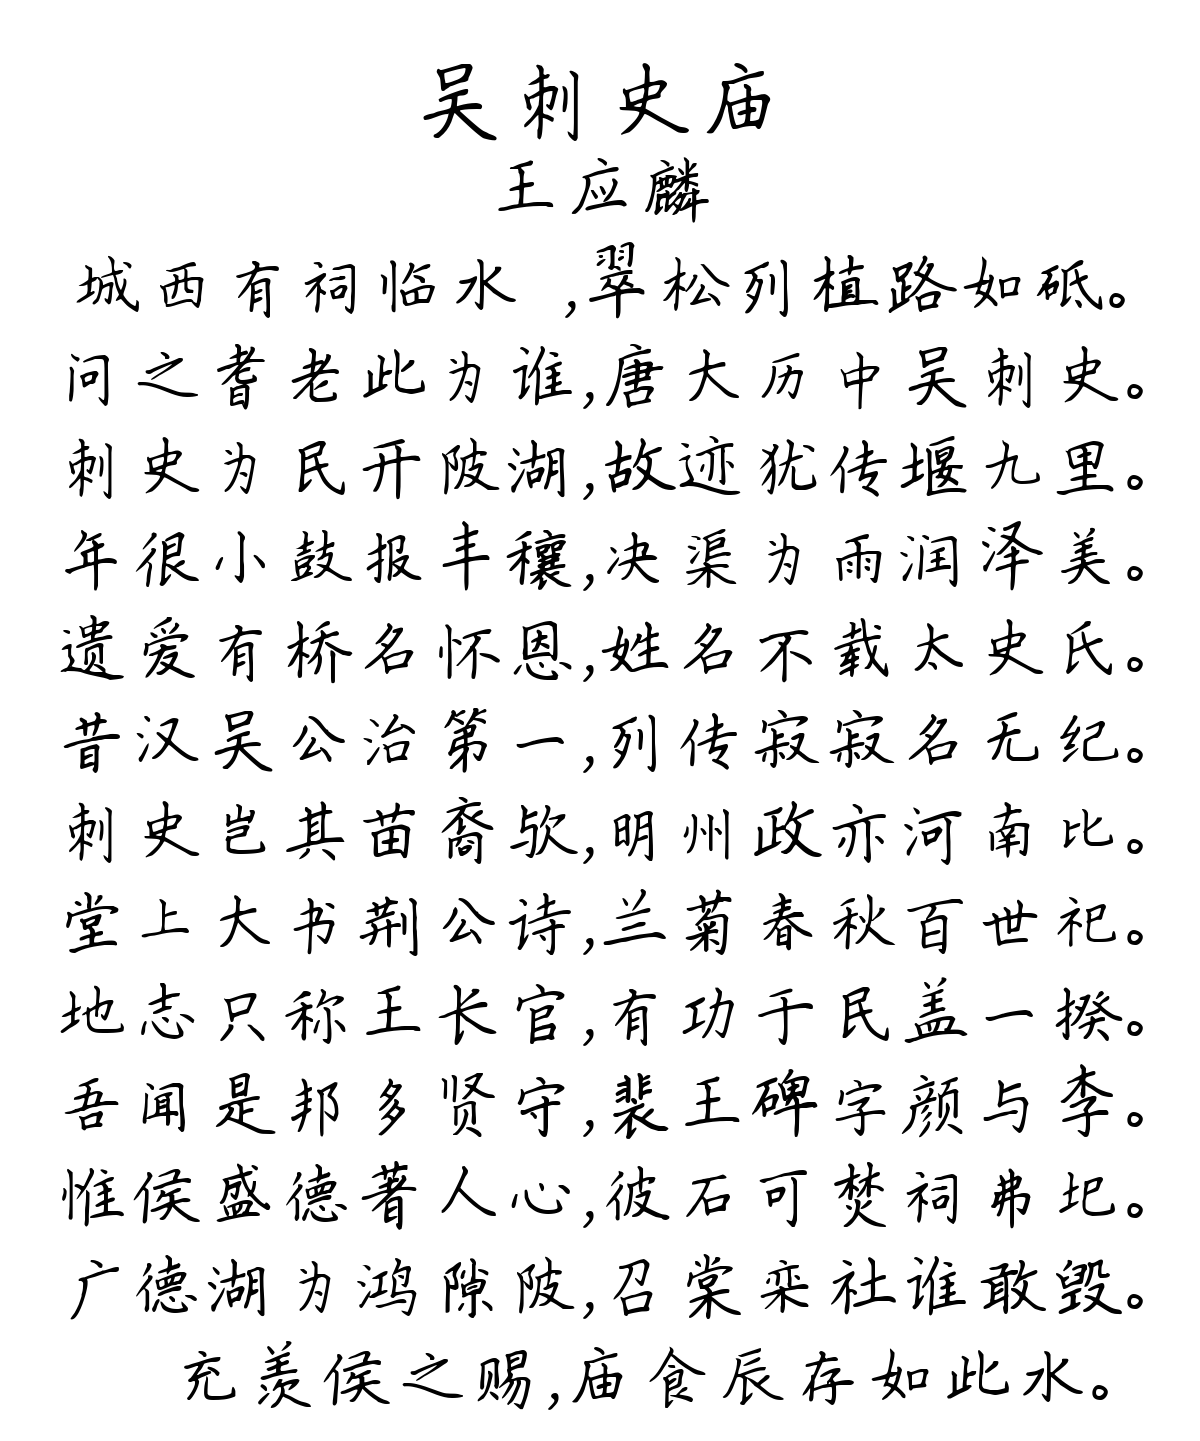 吴刺史庙
王应麟
城西有祠临水,翠松列植路如砥。
问之耆老此为谁,唐大历中吴刺史。
刺史为民开陂湖,故迹犹传堰九里。
年很小鼓报丰穰,决渠为雨润泽美。
遗爱有桥名怀恩,姓名不载太史氏。
昔汉吴公治第一,列传寂寂名无纪。
刺史岂其苗裔欤,明州政亦河南比。
堂上大书荆公诗,兰菊春秋百世祀。
地志只称王长官,有功于民盖一揆。
吾闻是邦多贤守,裴王碑字颜与李。
惟侯盛德著人心,彼石可焚祠弗圮。
广德湖为鸿隙陂,召棠栾社谁敢毁。
充羡侯之赐,庙食辰存如此水。